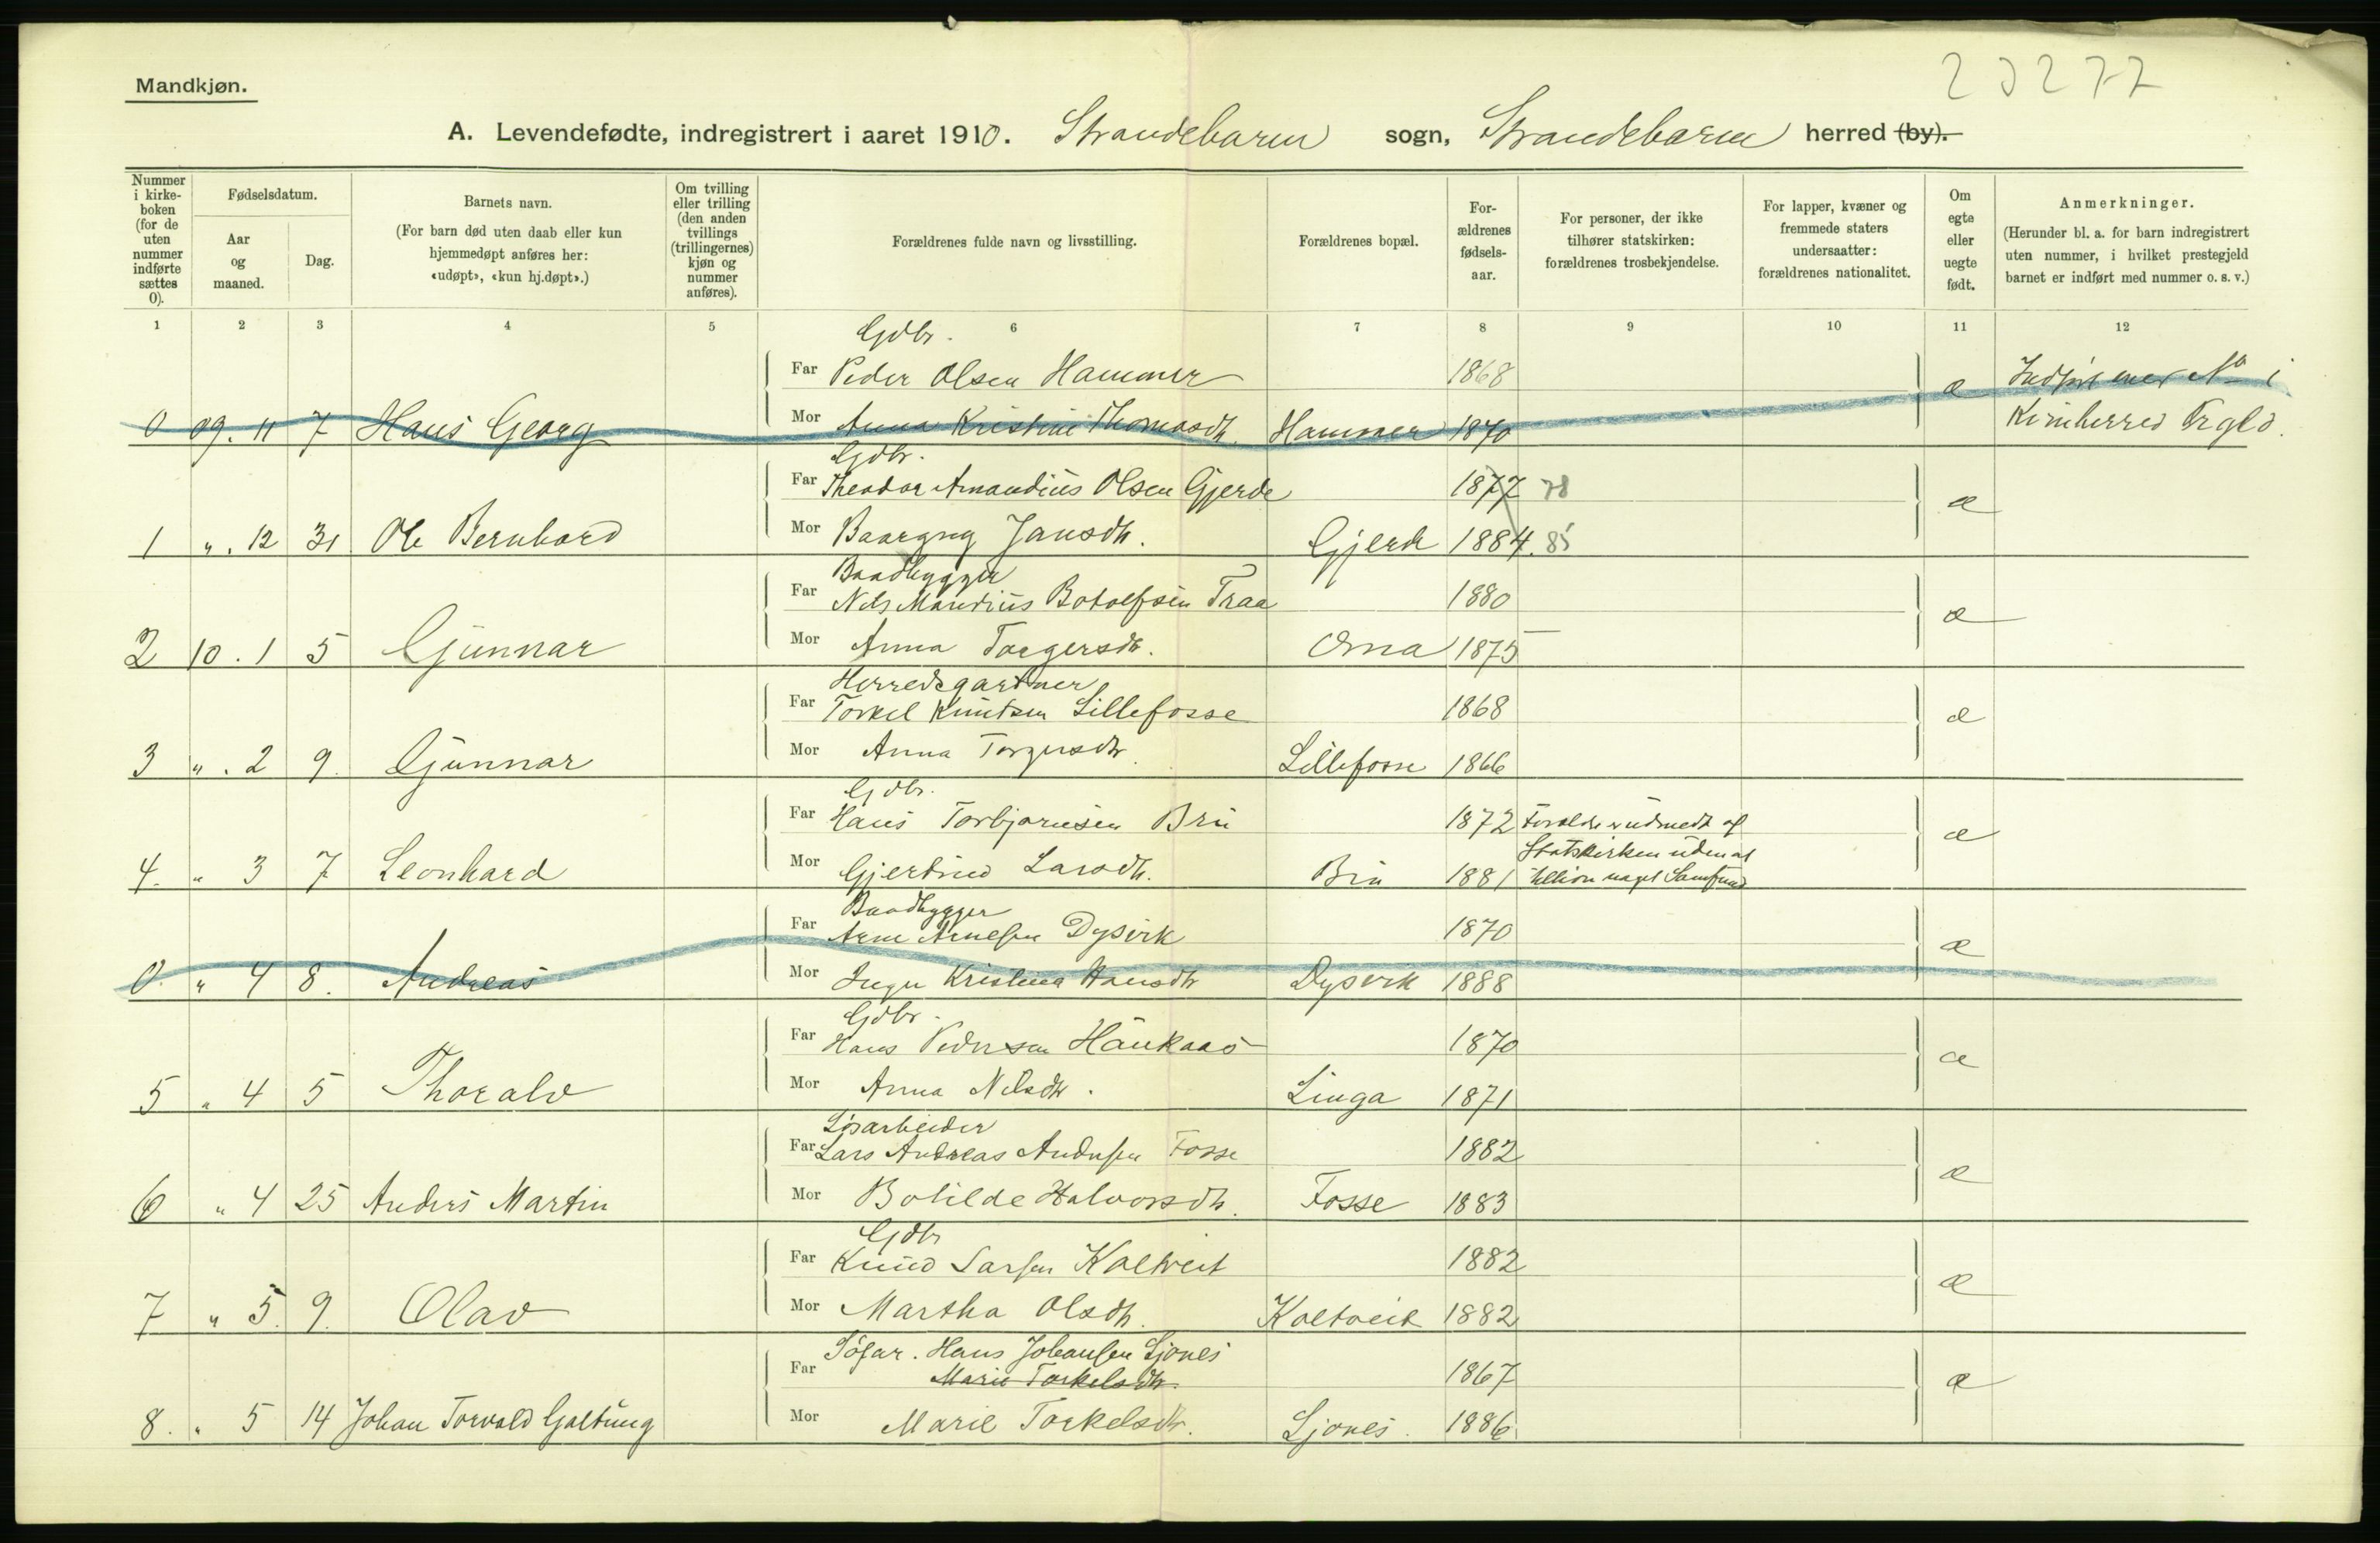 23277
Mandkjøn.
A. Levendefødte, indregistrert i aaret 1910. Strandebarm sogn, Strandebarm herred (by).
Nummer i kirkeboken (for de uten nummer indførte sættes 0).
Fødselsdatum.
Aar og maaned.
Dag.
Barnets navn.
(For barn død uten daab eller kun hjemmedøpt anføres her: «udøpt», «kun hj.døpt».)
Om tvilling eller trilling (den anden tvillings (trillingernes) kjøn og nummer anføres).
Forældrenes fulde navn og livsstilling.
Forældrenes bopæl.
Forældrenes fødselsaar.
For personer, der ikke tilhører statskirken: forældrenes trosbekjendelse.
For lapper, kvæner og fremmede staters undersaatter: forældrenes nationalitet.
Om egte eller uegte født.
Anmerkninger.
(Herunder bl. a. for barn indregistrert uten nummer, i hvilket prestegjeld barnet er indført med nummer o. s. v.)
1 2 3 4 5 6 7 8 9 10 11 12
Gdbr.
Far Peder Olsen Hammer 1868 æ Indført med No i
0 09. 11 7 Hans Georg Mor Anna Kristine Thomasdtr. Hammer 1870 Kvinherred Prgld.
Gdbr.
Far Theodor Amandius Olsen Gjerde 1877 78 æ
1 ". 12 31 Ole Bernhard Mor Jansdtr. Gjerde 1884. 85
Baadbygger
Far Nils Mandius Botolfsen Traa 1880 æ
2 10. 1 5 Gunnar Mor Anna Torgersdtr. Oma 1875
Herredsgartner
Far Torkel Knutsen Lillefosse 1868 æ
3 ". 2 9. Gunnar Mor Anna Torgersdtr. Lillefosse 1866
Gdbr.
Far Hans Torbjørnsen Bru 1872 Forældre udmedt af æ
Statskirken uden at
4. " 3 7 Leonhard Mor Gjertrud Larsdtr. Bru 1881 tilhøre noget Samfund
Baadbygger
Far Arne Arnesen Dysvik 1870 æ
0. " 4 8. Andreas Mor Inga Kristina Hansdtr Dysvik 1888
Gdbr.
Far Hans Pedersen Haukaas 1870 æ
5 " 4 5 Thoralv Mor Anna Nilsdtr. Linga 1871
Løsarbeider
Far Lars Andreas Andersen Fosse 1882 æ
6 " 4 25 Anders Martin Mor Botilde Halvorsdtr. Fosse 1883
Gdbr
Far Knud Larsen Kaltveit 1882 æ
7 " 5. 9. Olav Mor Martha Olsdtr. Kaltveit 1882
Far Söfar. Hans Johansen Ljones 1867 æ
Marie Torkelsdtr.
8. " 5 14 Johan Torvald Galtung Mor Marie Torkelsdtr. Ljones. 1886.